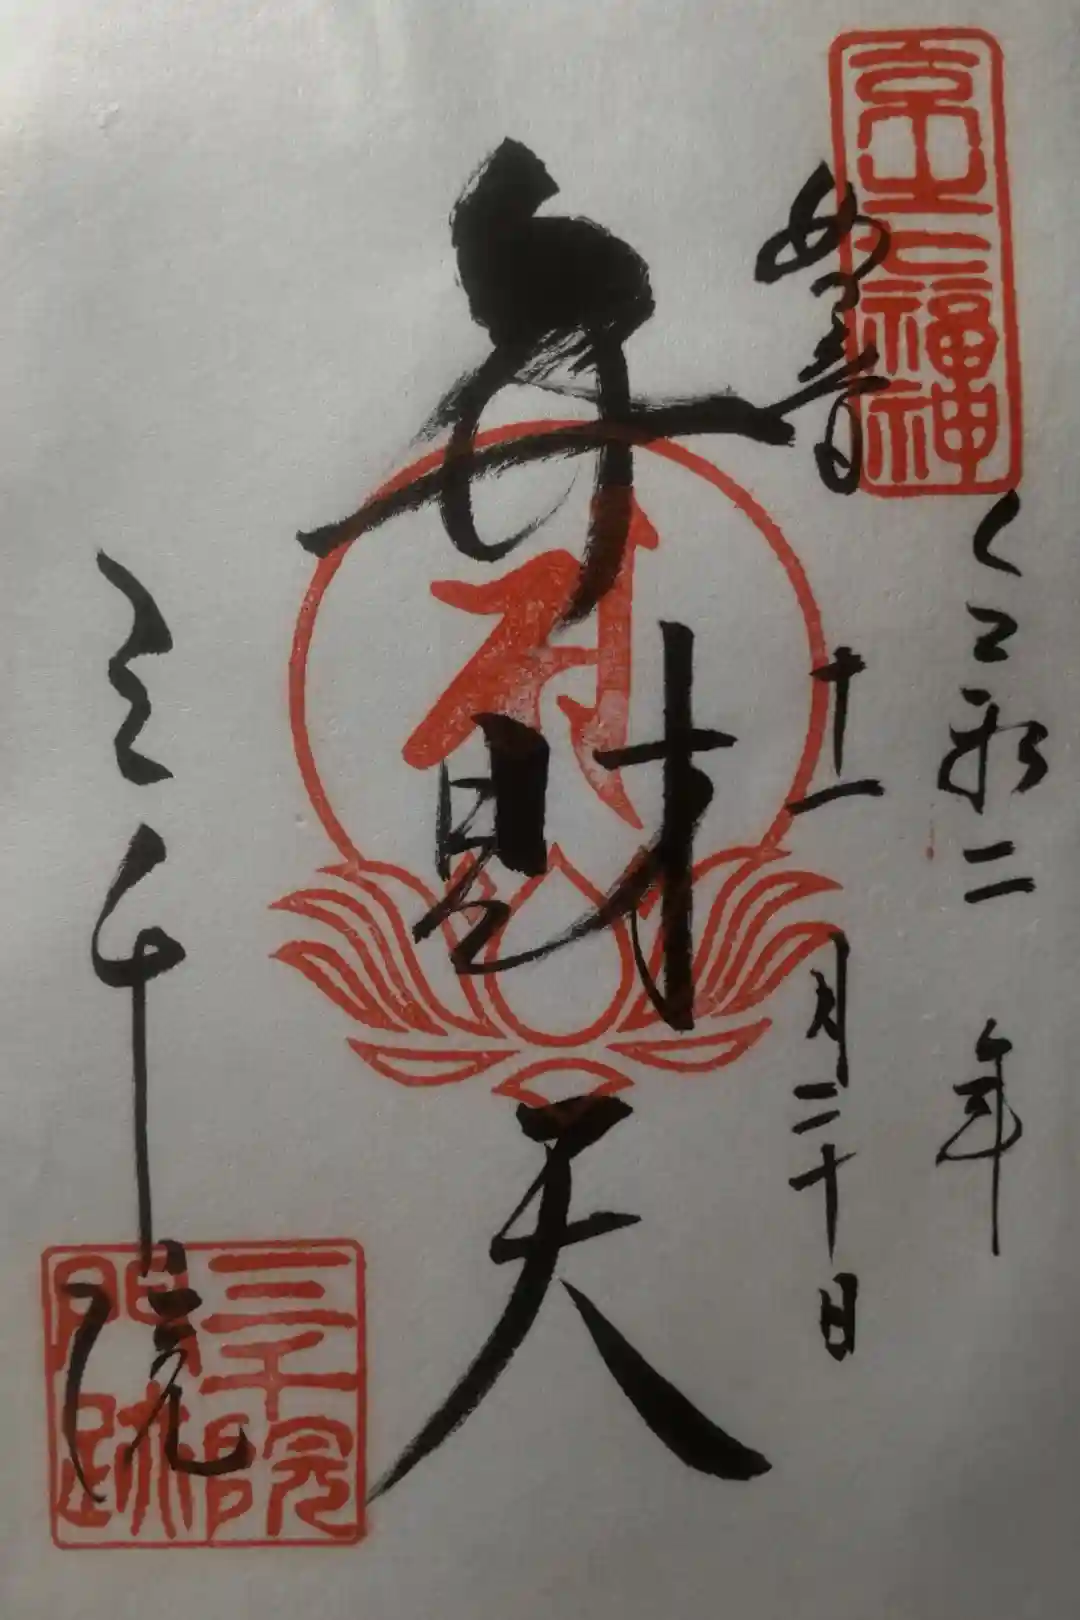 京之七福神
令和二年
十一月二十日
弁財天
三千院
三千院
門跡